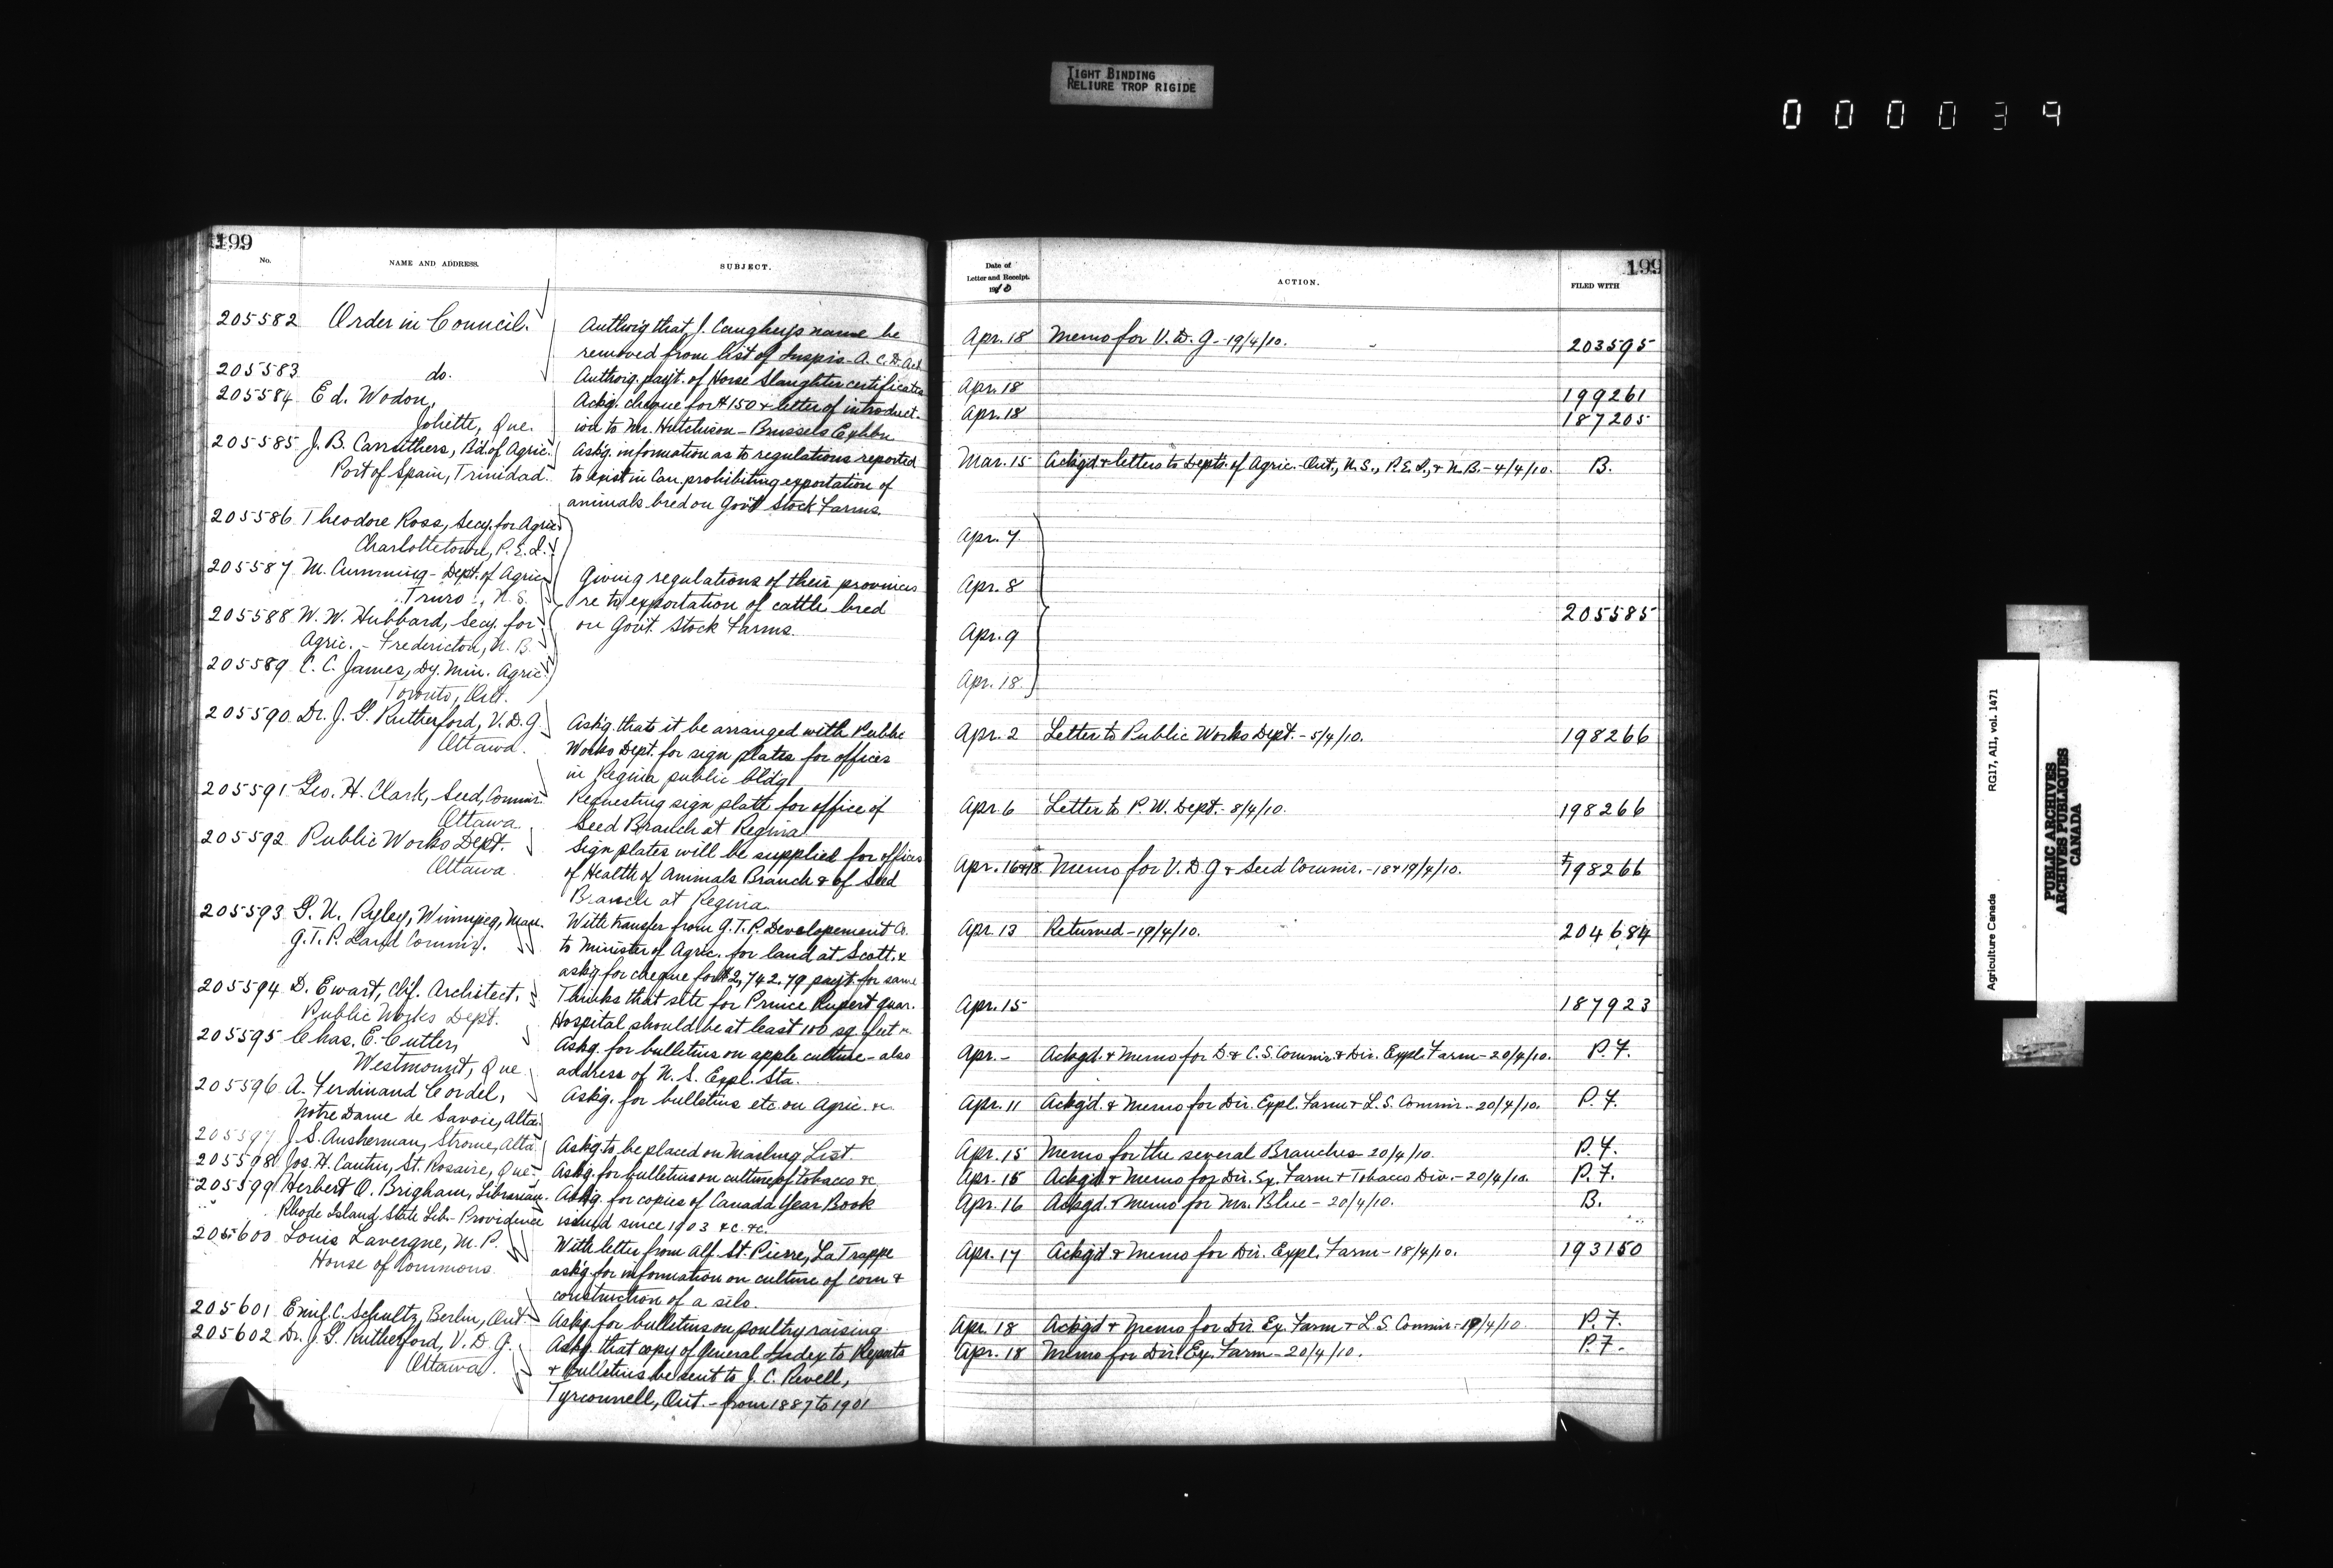 TIGHT BINDING
RELIURE TROP RIGIDE
000039
199
No.
NAME AND ADDRESS.
SUBJECT.
205582 Order in Council.
Authorig that J. Caughey's name be
removed from list of Inspis. A. C. D. Act
205583 do.
Authorig. pay't. of Horse Slaughter certificates
205584 Ed. Wodon,
Joliette, Que.
Ackg. cheque for $150 & letter of introduct-
ion to Mr. Hutchison - Brussels Exhbn
205585 J. B. Carruthers, Bd. of Agric.
Port of Spain, Trinidad.
Ask'g. information as to regulations reported
to exist in Can. prohibiting exportation of
animals bred on Gov't Stock Farms.
205586 Theodore Ross, Secy. for Agric.
Charlottetown, P.E.I.
205587 M. Cumming - Dept. of Agric.
Truro, N.S.
205588 W. W. Hubbard, Secy. for
Agric. - Fredericton, N. B.
205589 C. C. James, Dy. Min. Agric.
Toronto, Ont.
Giving regulations of their provinces
re to exportation of cattle bred
on Gov't. Stock Farms.
205590 Dr. J. G. Rutherford, V. D. G.
Ottawa.
Ask'g. that it be arranged with Public
Works Dept. for sign plates for offices
in Regina public bldg.
205591 Geo. H. Clark, Seed Commr.
Ottawa
Requesting sign plate for office of
Seed Branch at Regina
205592 Public Works Dept.
Ottawa
Sign plates will be supplied for offices
of Health of Animals Branch & of Seed
Branch at Regina.
205593 G. U. Ryley, Winnipeg, Man.
G.T.P. Land Commr.
With transfer from G.T.P. Developement Co.
to Minister of Agric. for land at Scott, &
askg for cheque for $2,742.79 pay't for same
205594 D. Ewart, Chf. Architect,
Public Works Dept.
Thinks that site for Prince Rupert quar.
Hospital should be at least 100 sq. feet &c
205595 Chas. E. Cutler,
Westmount, Que.
Askg. for bulletins on apple culture - also
address of N. S. Expl. Sta.
205596 A. Ferdinand Cordel,
Notre Dame de Savoie, Alta.
Ask'g. for bulletins etc. on Agric. &c.
205597 J. S. Ausherman, Strome, Alta.
Ask'g to be placed on Mailing List.
205598 Jos. H. Cantin, St. Rosaire, Que.
Ask'g. for bulletins on culture of tobacco &c
205599 Herbert O. Brigham, Librarian
Rhode Island State Lib. - Providence
Ask'g. for copies of Canada Year Book
issued since 1903 &c. &c.
205600 Louis Lavergne, M.P.
House of Commons
With letter from Alf. St. Pierre, La Trappe
ask'g for information on culture of corn &
construction of a silo.
205601 Emil C. Schultz, Berlin, Ont.
Ask'g. for bulletins on poultry raising
205602 Dr. J. G. Rutherford, V. D. G.
Ottawa.
Askg. that copy of General Index to Reports
& bulletins be sent to J. C. Revell,
Tyrconnell, Ont. - from 1887 to 1901
199
Date of
Letter and Receipt.
1910
ACTION.
FILED WITH
Apr. 18 Memo for V. D. G. - 19/4/10. 203595
Apr. 18 199261
Apr. 18 187205
Mar. 15 Ack'gd & letters to Depts. of Agric. - Ont., N. S., P. E. I., & N. B. - 4/4/10. B.
Apr. 7
Apr. 8
205585
Apr. 9
Apr. 18
Apr. 2 Letter to Public Works Dept. - 5/4/10. 198266
Apr. 6 Letter to P. W. Dept. - 8/4/10. 198266
Apr. 16 & 18 Memo for V. D. G & Seed Commr. - 18 & 19/4/10. 198266
Apr. 13 Returned - 19/4/10. 204684
Apr. 15 187923
Apr. - Ackgd. & Memo for D. & C. S. Commr. & Dir. Expl. Farm - 20/4/10. P. F.
Apr. 11 Ackg'd. & Memo for Dir. Expl. Farm & L. S. Commr. - 20/4/10. P. F.
Apr. 15 Memo for the several Branches 20/4/10. P. F.
Apr. 15 Ackgd. & Memo for Dir. Ex. Farm & Tobacco Div. - 20/4/10. P. F.
Apr. 16 Ackgd. & Memo for Mr. Blue - 20/4/10. B.
Apr. 17 Ackg'd. & Memo for Dir. Expl. Farm - 18/4/10. 193150
Apr. 18 Ackg'd & Memo for Dir. Ex. Farm & L. S. Commr. - 19/4/10 P. F.
Apr. 18 Memo for Dir. Ex. Farm - 20/4/10. P. F.
Agriculture Canada
RG17, AII, vol. 1471
PUBLIC ARCHIVES
ARCHIVES PUBLIQUES
CANADA